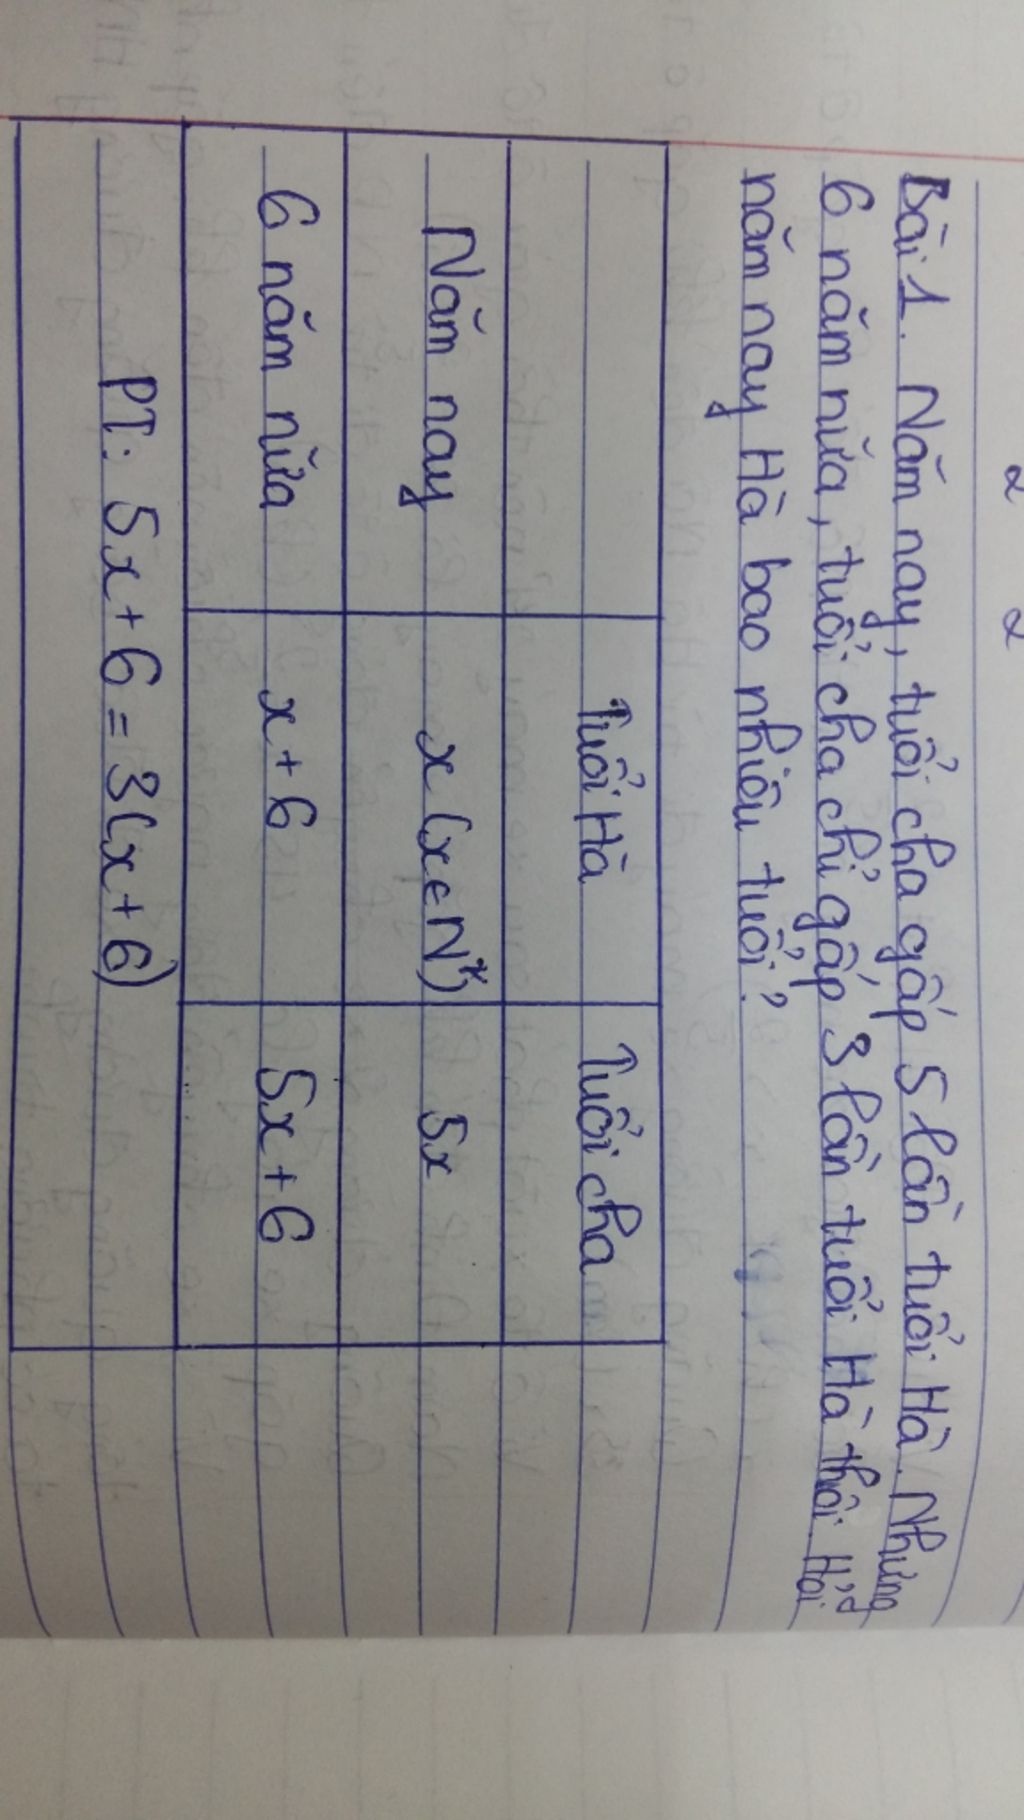 Bài 1. Năm nay, tuổi cha gấp 5 lần tuổi Hà. Nhưng
6 năm nữa, tuổi cha chỉ gấp 3 lần tuổi Hà thôi. Hỏi
năm nay Hà bao nhiêu tuổi?
Tuổi Hà Tuổi cha
Năm nay x (x∈N*) 5x
6 năm nữa x+6 5x+6
PT: 5x+6=3(x+6)